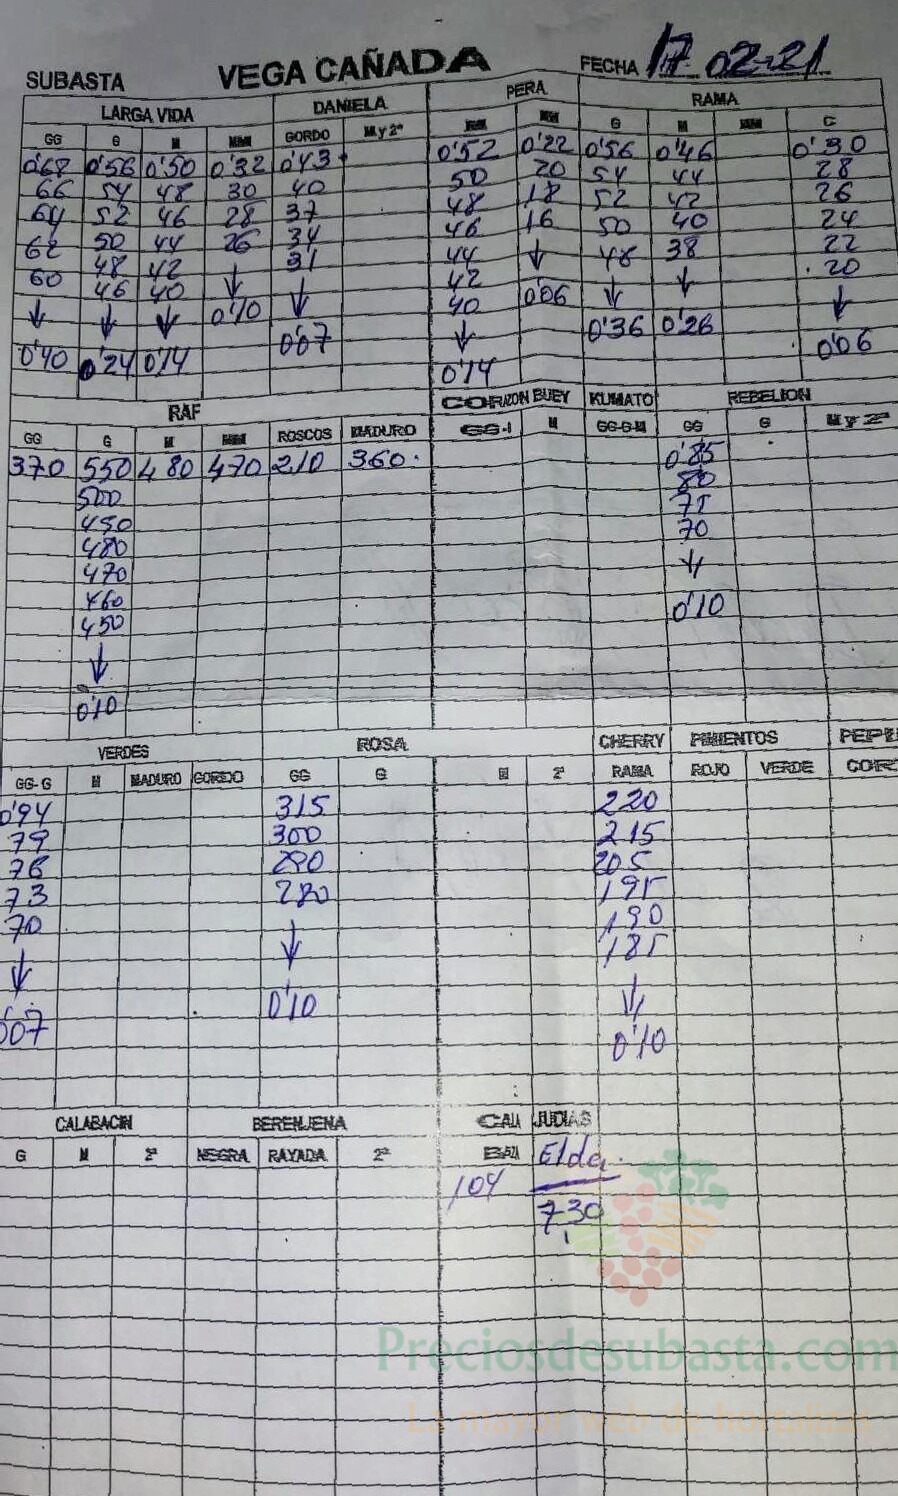 SUBASTA VEGA CAÑADA FECHA 17 02-21
LARGA VIDA DANIELA PERA RAMA
GG G M MM GORDO M y 2ª MM G M MM C
0'68 0'56 0'50 0'32 0'43 0'52 0'22 0'56 0'46 0'30
66 54 48 30 40 50 20 54 44 28
64 52 46 28 37 48 18 52 42 26
62 50 44 26 34 46 16 50 40 24
60 48 42 ↓ 31 44 ↓ 48 38 22
↓ 46 40 0'10 ↓ 42 0'06 ↓ ↓ 20
0'40 ↓ ↓ 0'07 40 0'36 0'26 ↓
0'24 0'14 ↓ 0'06
0'14
RAF CORAZON BUEY KUMATO REBELION
GG G M MM ROSCOS MADURO GG-1 M GG-G-M GG G M y 2ª
370 550 480 470 210 360 0'85
500 80
450 75
480 70
470 ↓
460 0'10
450
↓
0'10
VERDES ROSA CHERRY PIMIENTOS
GG-G M MADURO GORDO GG G M 2ª RAMA ROJO VERDE
0'94 315 220
79 300 215
76 290 205
73 280 195
70 ↓ 190
↓ 0'10 185
007 ↓
0'10
CALABACIN BERENJENA JUDIAS
G M 2ª NEGRA RAYADA 2ª Elda
104 730
Preciosdesubasta.com
La mayor web de hortalizas